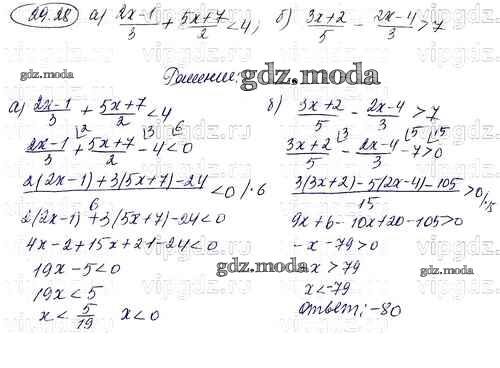 29.28 а) (2x-1)/3 + (5x+7)/2 < 4; б) (3x+2)/5 - (2x-4)/3 > 7
Решение.
gdz.moscow
а) (2x-1)/3 + (5x+7)/2 < 4
(2x-1)/3 + (5x+7)/2 - 4 < 0
(2(2x-1)+3(5x+7)-24)/6 < 0 /·6
2(2x-1)+3(5x+7)-24<0
4x-2+15x+21-24<0
19x-5<0
19x<5
x < 5/19 x<0
б) (3x+2)/5 - (2x-4)/3 > 7
(3x+2)/5 - (2x-4)/3 - 7>0
(3(3x+2)-5(2x-4)-105)/15 > 0/·15
9x+6-10x+20-105>0
-x-79>0
-x>79
x<-79
Ответ: -80
gdz.moscow
vipgdz.ru